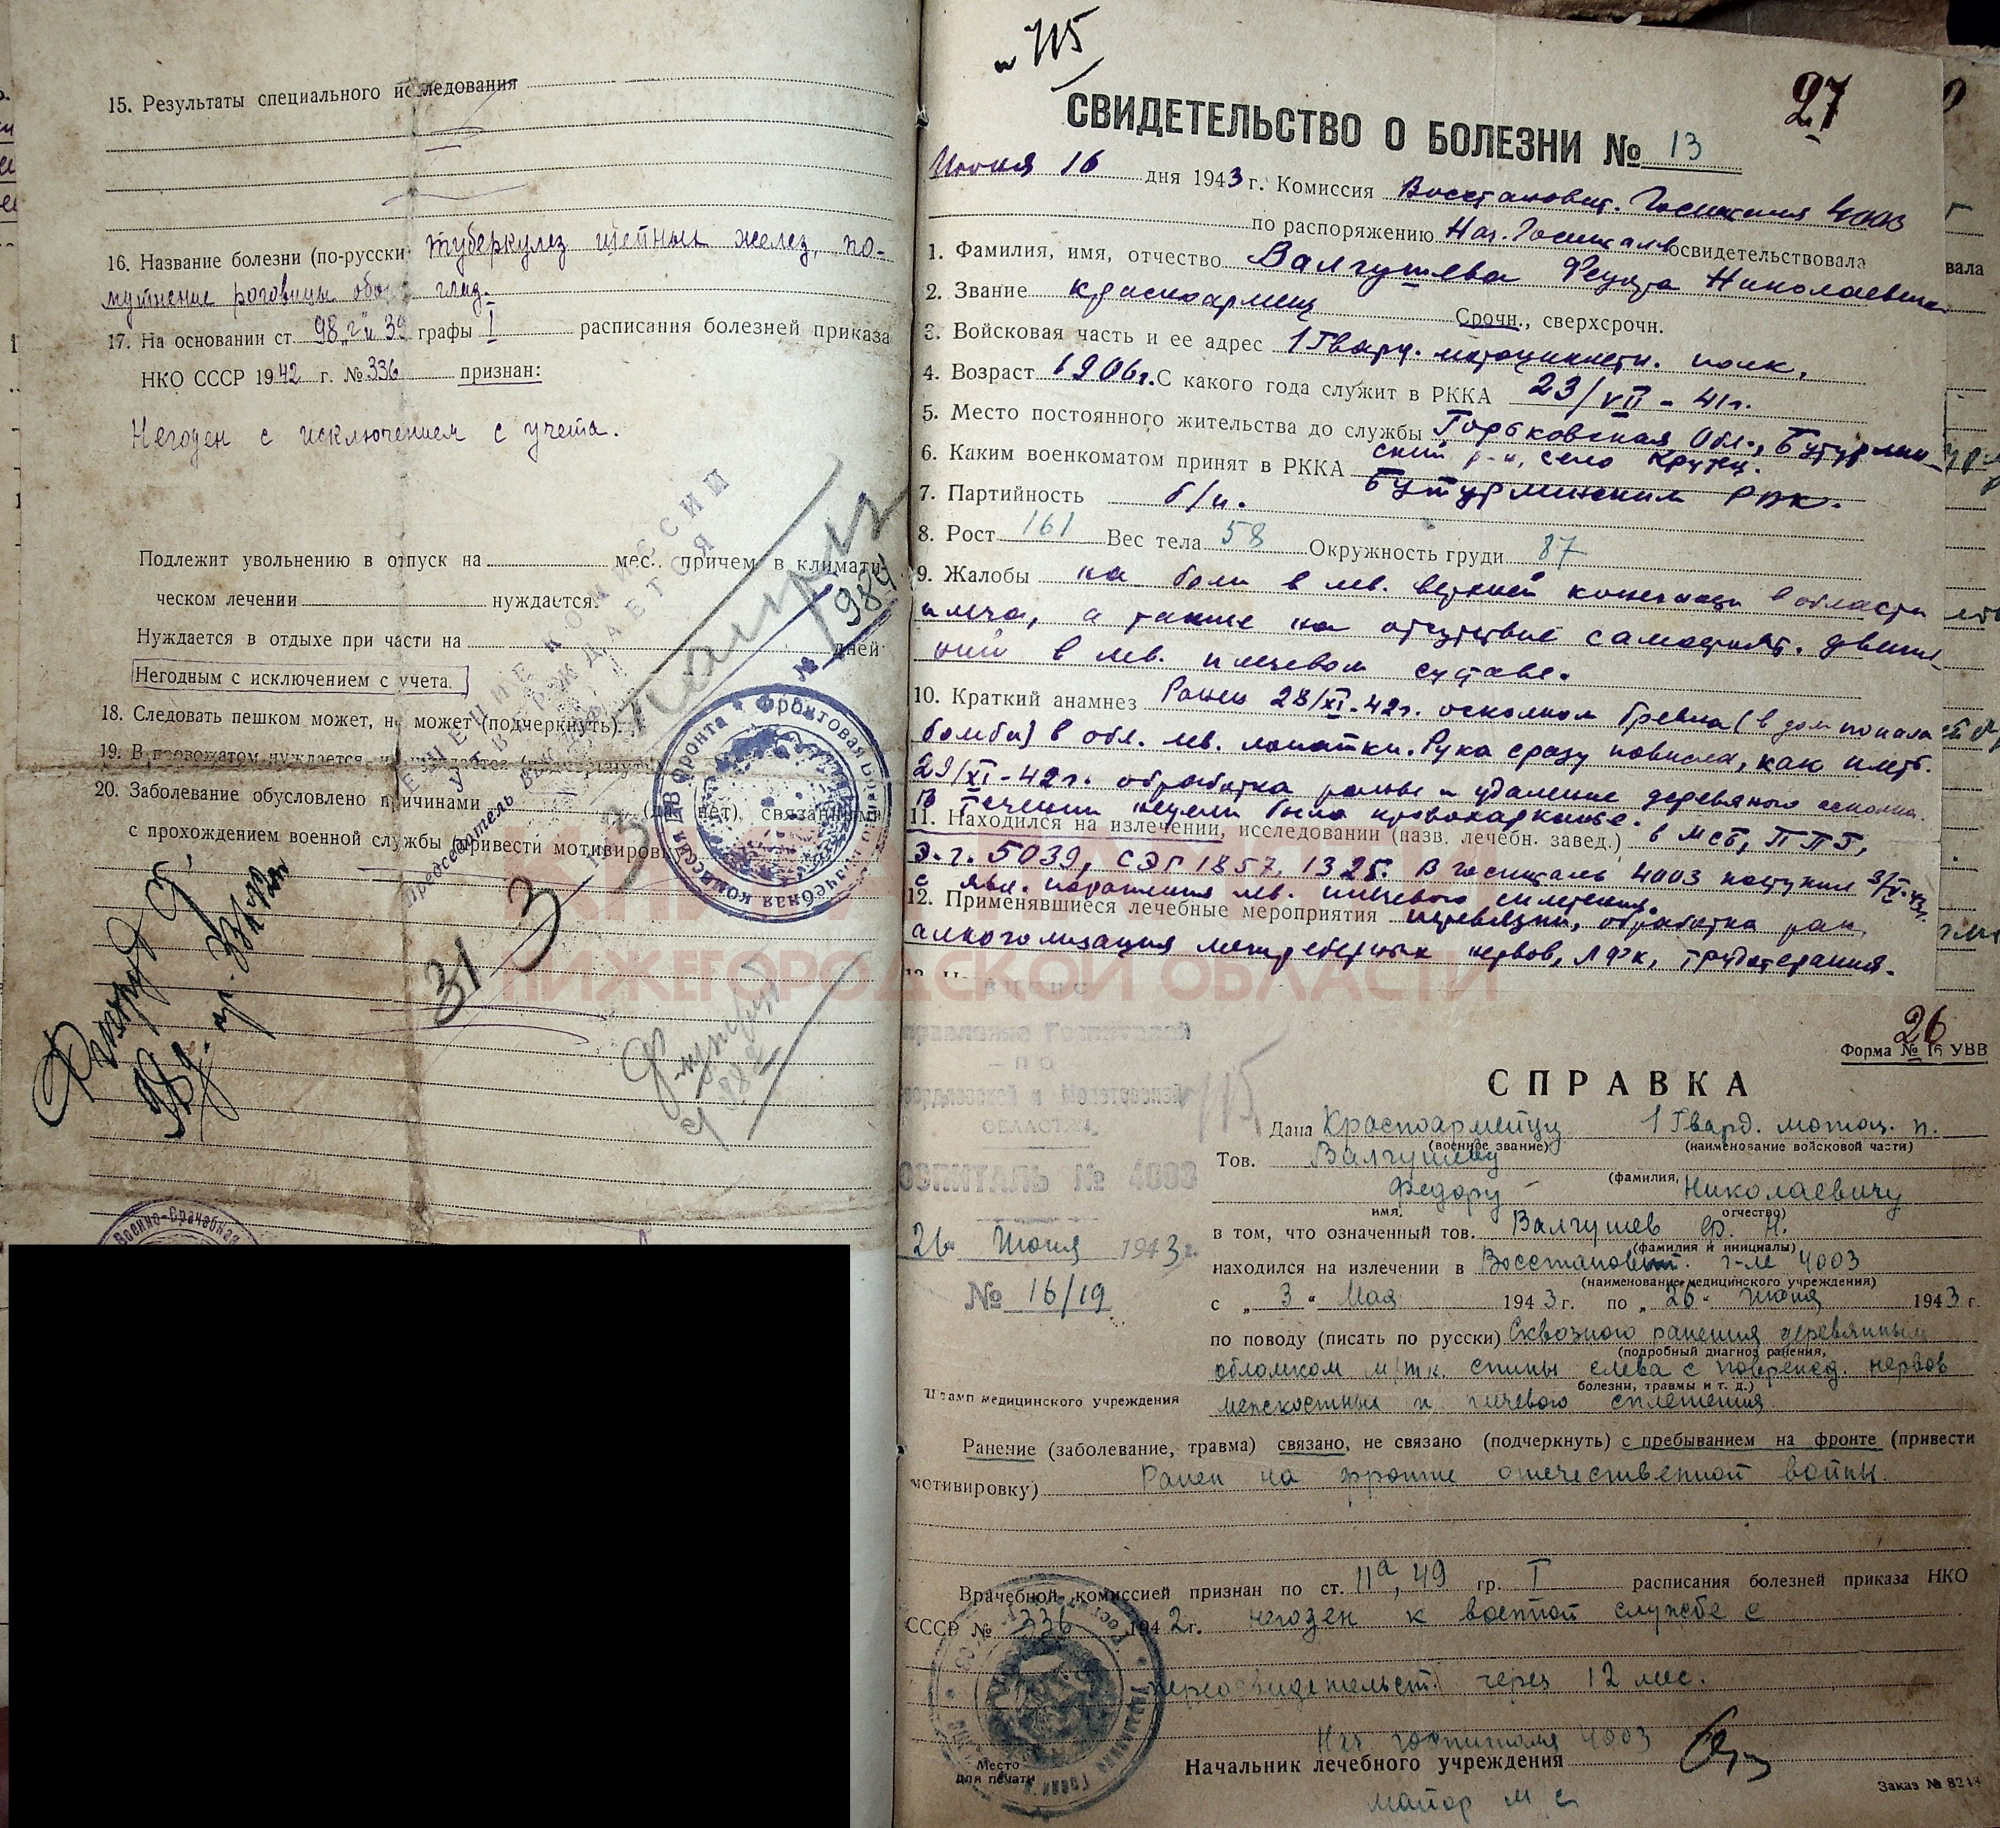 15. Результаты специального исследования
16. Название болезни (по-русски туберкулез шейных желез, по-
мутнение роговицы обоих глаз.
17. На основании ст 98 „г" и 39 графы I расписания болезней приказа
НКО СССР 1942 г. № 336 признан:
Негоден с исключением с учета.
Подлежит увольнению в отпуск на мес., причем в климати-
ческом лечении нуждается.
Нуждается в отдыхе при части на дней
Негодным с исключением с учета.
18. Следовать пешком может, не может (подчеркнуть).
19. В провожатом нуждается, не нуждается
20. Заболевание обусловлено причинами (да, нет), связанными
с прохождением военной службы (привести мотивировку
УТВЕРЖДАЕТСЯ
Председатель
№ 984
31 3
Фронтовая Военно-врачебная комиссия
Военно-Врачебная
КНИГА ПАМЯТИ
НИЖЕГОРОДСКОЙ ОБЛАСТИ
н 715
27
СВИДЕТЕЛЬСТВО О БОЛЕЗНИ № 13
Июня 16 дня 1943 г. Комиссия Восстановит. Госпиталя 4003
по распоряжению Нач. Госпиталя освидетельствовала
1. Фамилия, имя, отчество Валгушева Федора Николаевича
2. Звание красноармеец Срочн., сверхсрочн.
3. Войсковая часть и ее адрес 1 Гвард. мотоциклетн. полк.
4. Возраст 1906г. С какого года служит в РККА 23/VII-41г.
5. Место постоянного жительства до службы Горьковская Обл., Бутурлин-
ский р-н, село Крутец.
6. Каким военкоматом принят в РККА Бутурлинским РВК.
7. Партийность б/п.
8. Рост 161 Вес тела 58 Окружность груди 87
9. Жалобы на боли в лев. верхней конечности в области
плеча, а также на отсутствие самостоят. движе-
ний в лев. плечевом суставе.
10. Краткий анамнез Ранен 28/XI-42г. осколком бревна (в дом попала
бомба) в обл. лев. лопатки. Рука сразу повисла, как плеть.
29/XI-42г. обработка раны и удаление деревяного осколка.
В течении недели было кровохарканье.
11. Находился на излечении, исследовании (назв. лечебн. завед.) в МСБ, ППГ,
Э.г. 5039, СЭГ 1857, 1325. В госпиталь 4003 поступил 3/V-43г.
с явл. поражения лев. плечевого сплетения.
12. Применявшиеся лечебные мероприятия перевязки, обработка ран,
алкоголизация межреберных нервов, ЛФК, трудотерапия.
26
Форма № 16 УВВ
СПРАВКА
ВЦСПС
Управление Госпиталей
– ПО –
ОБЛАСТЯМ
ГОСПИТАЛЬ № 4003
26 Июня 1943 г.
№ 16/19
Штамп медицинского учреждения
Дана Красноармейцу 1 Гвард. мотоц. п.
(военное звание) (наименование войсковой части)
Тов. Валгушеву
(фамилия,
Федору Николаевичу
имя, отчество)
в том, что означенный тов. Валгушев Ф. Н.
(фамилия и инициалы)
находился на излечении в Восстановит. г-ле 4003
(наименование медицинского учреждения)
с „ 3 " Мая 1943 г. по „ 26 " Июня 1943 г.
по поводу (писать по русски) Сквозного ранения деревянным
(подробный диагноз ранения,
обломком м/тк. спины слева с поврежд. нервов
болезни, травмы и т. д.)
межкостных и плечевого сплетения
Ранение (заболевание, травма) связано, не связано (подчеркнуть) с пребыванием на фронте (привести
мотивировку) Ранен на фронте отечественной войны.
Врачебной комиссией признан по ст. 11а, 49 гр. I расписания болезней приказа НКО
СССР № 336 1942 г. негоден к военной службе с
переосвидетельст. через 12 мес.
Нач. госпиталя 4003
Начальник лечебного учреждения
майор м/с
Место
для печати
Заказ № 8244